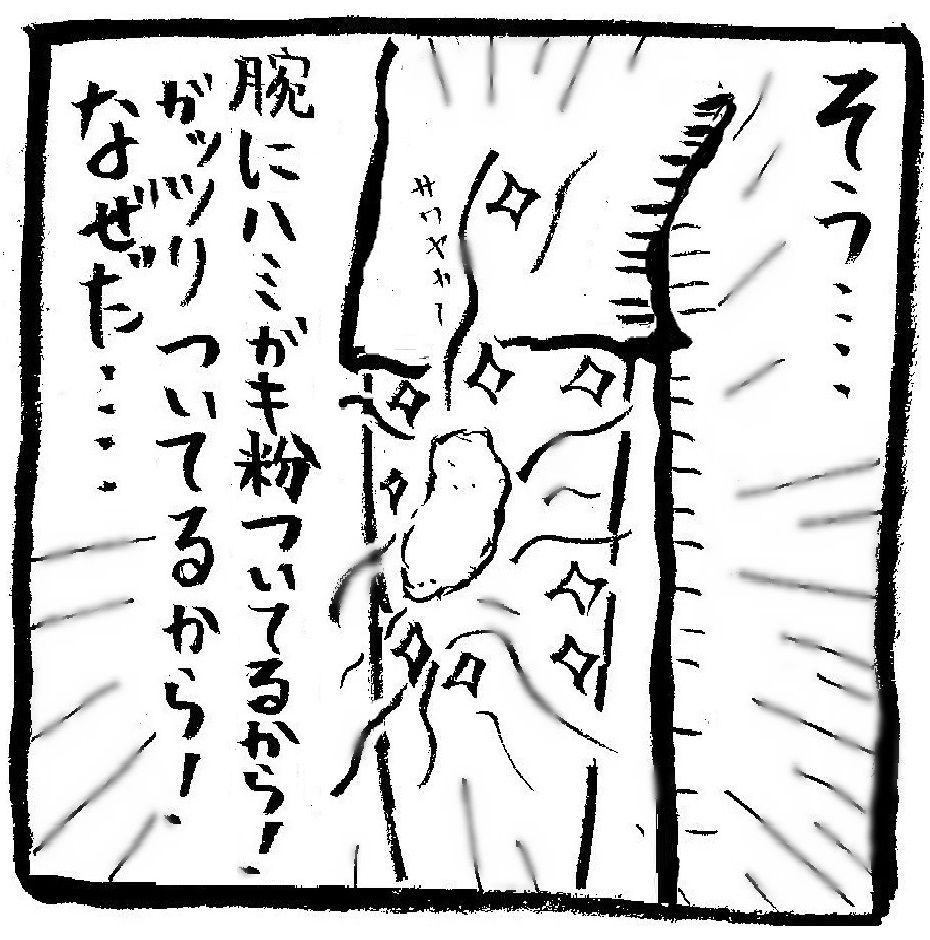 そう…
サワヤカー
腕にハミガキ粉ついてるから!
ガッツリついてるから!
なぜだ…